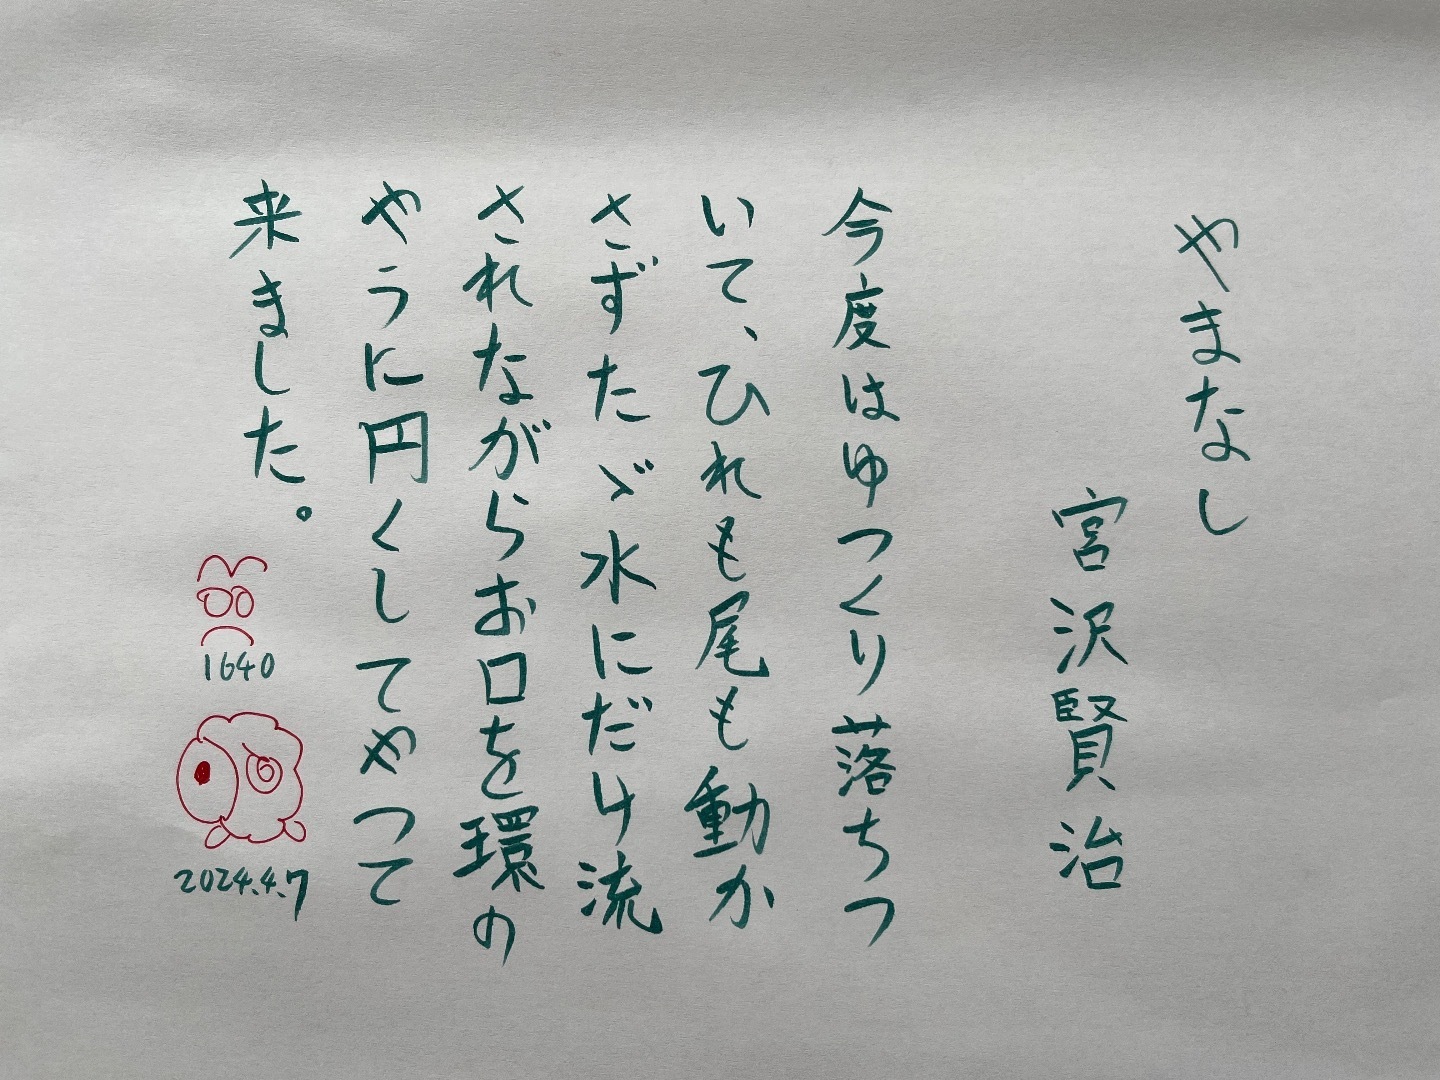 やまなし
宮沢賢治
今度はゆつくり落ちつ
いて、ひれも尾も動か
さずたゞ水にだけ流
されながらお口を環の
やうに円くしてやつて
来ました。
1640
2024.4.7